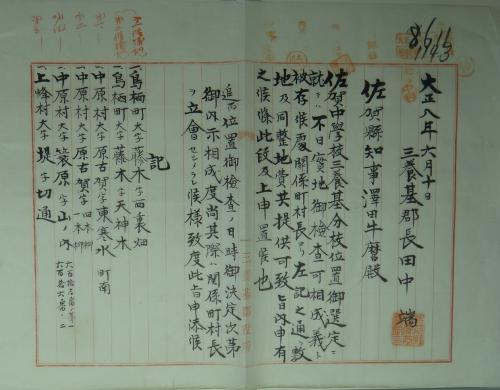 大正八年六月十日
三養基郡長田中 端
佐賀縣知事澤田牛麿殿
佐賀中學校三養基分校位置御選定ニ
就テハ不日實地御檢查可相成義ト
被存候處關係町村長ヨリ左記之通敷
地及同整地費共提供可致旨內申有
之候條此段及上申置候也
追テ位置御檢查ノ日時御決定次第
御內示相成度尚其際ハ關係町村長
ヲ立會セシメラレ候樣致度此旨申添候
記
一鳥栖町大字藤木字西裏畑
一鳥栖町大字藤木字天神木
一中原村大字原古賀字東寒水 町南
一中原村大字原古賀字四本柳 一本柳
一中原村大字簑原字山ノ內
一上峰村大字堤字切通